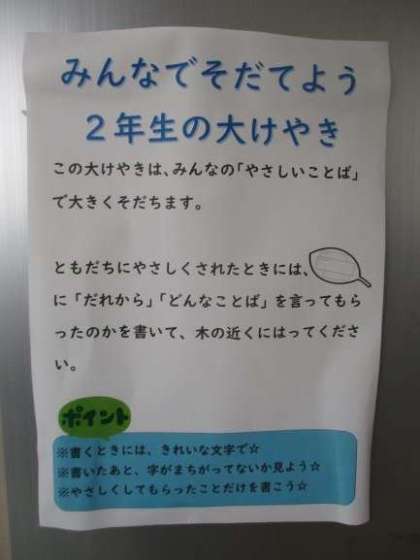 みんなでそだてよう
２年生の大けやき
この大けやきは、みんなの「やさしいことば」
で大きくそだちます。
ともだちにやさしくされたときには、
に「だれから」「どんなことば」を言ってもら
ったのかを書いて、木の近くにはってくださ
い。
ポイント
※書くときには、きれいな文字で☆
※書いたあと、字がまちがってないか見よう☆
※やさしくしてもらったことだけを書こう☆